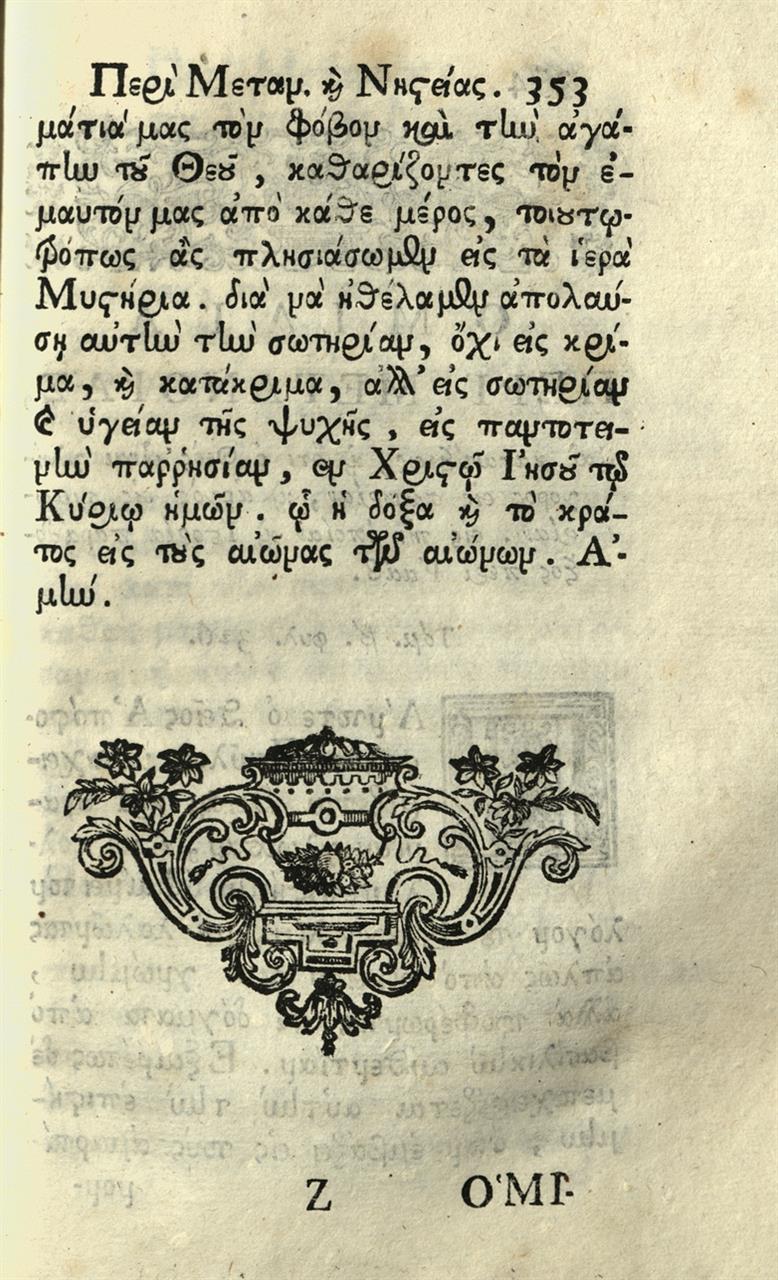 Περὶ Μεταν. ϗ̀ Νηϛείας. 353
μάτιά μας τὸν φόβον καὶ τὴν ἀγά-
πην τοῦ Θεοῦ, καθαρίζοντες τὸν ἐ-
μαυτόν μας ἀπὸ κάθε μέρος, τοιουτω-
τρόπως ἂς πλησιάσωμεν εἰς τὰ ἱερὰ
Μυϛήρια. διὰ νὰ ἠθέλαμεν ἀπολαύ-
σῃ αὐτὴν τὴν σωτηρίαν, ὄχι εἰς κρί-
μα, ϗ̀ κατάκριμα, ἀλλ' εἰς σωτηρίαν
ϗ̀ ὑγείαν τῆς ψυχῆς, εἰς παντοτει-
νὴν παῤῥησίαν, ἐν Χριϛῷ Ἰησοῦ τῷ
Κυρίῳ ἡμῶν. ᾧ ἡ δόξα ϗ̀ τὸ κρά-
τος εἰς τοὺς αἰῶνας τῶν αἰώνων. Ἀ-
μήν.
Z ὉΜΙ-